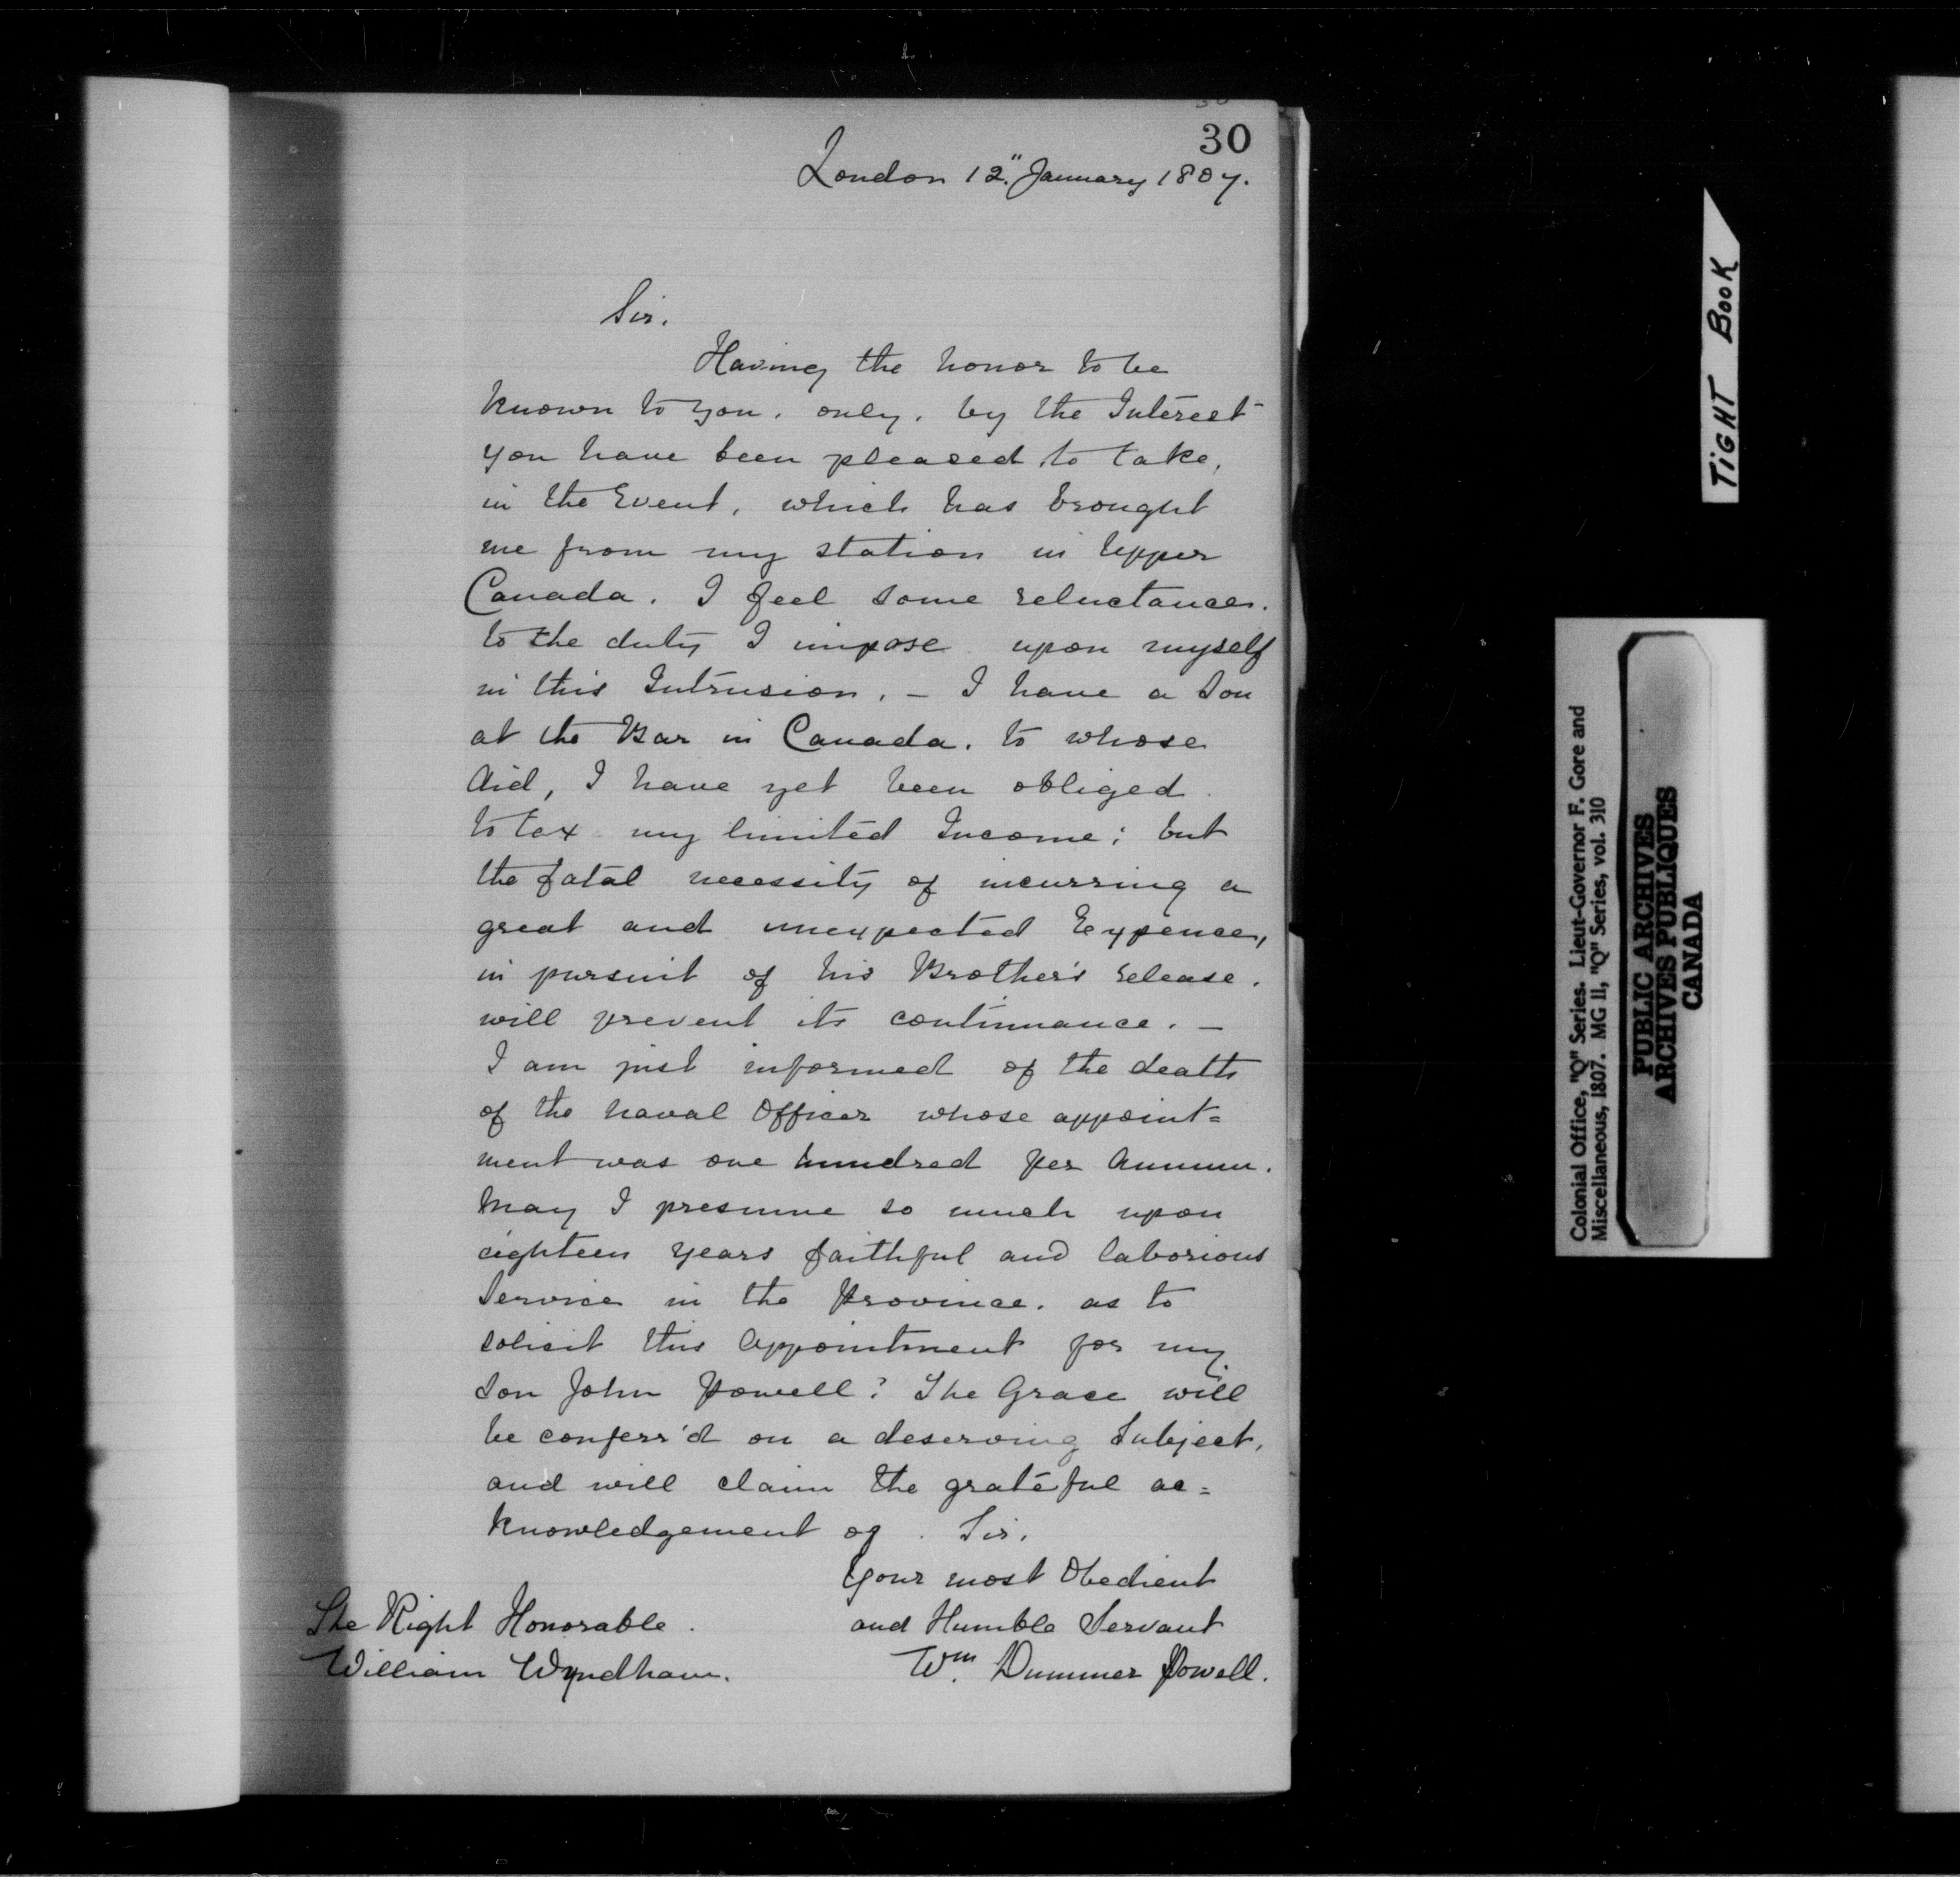 30
London 12." January 1807.
Sir.
Having the honor to be
known to you, only, by the Interest
you have been pleased to take,
in the Event, which has brought
me from my station in Upper
Canada. I feel some reluctance.
to the duty I impose upon myself
in this Intrusion. – I have a Son
at the Bar in Canada. to whose
Aid, I have yet been obliged
to tax my limited Income; but
the fatal necessity of incurring a
great and unexpected Expence,
in pursuit of his Brother's release.
will prevent its continuance. –
I am just informed of the death
of the Naval Officer whose appoint=
ment was one hundred per Annum.
May I presume so much upon
eighteen years faithful and laborious
Service in the Province. as to
solicit this Appointment for my
Son John Powell? The Grace will
be conferr'd on a deserving Subject,
and will claim the grateful ac=
knowledgement of . Sir.
Your most Obedient
and Humble Servant
Wm. Dummer Powell.
The Right Honorable.
William Wyndham.
TIGHT BOOK
Colonial Office, "Q" Series. Lieut-Governor F. Gore and
Miscellaneous, 1807. MG 11, "Q" Series, vol. 310
PUBLIC ARCHIVES
ARCHIVES PUBLIQUES
CANADA